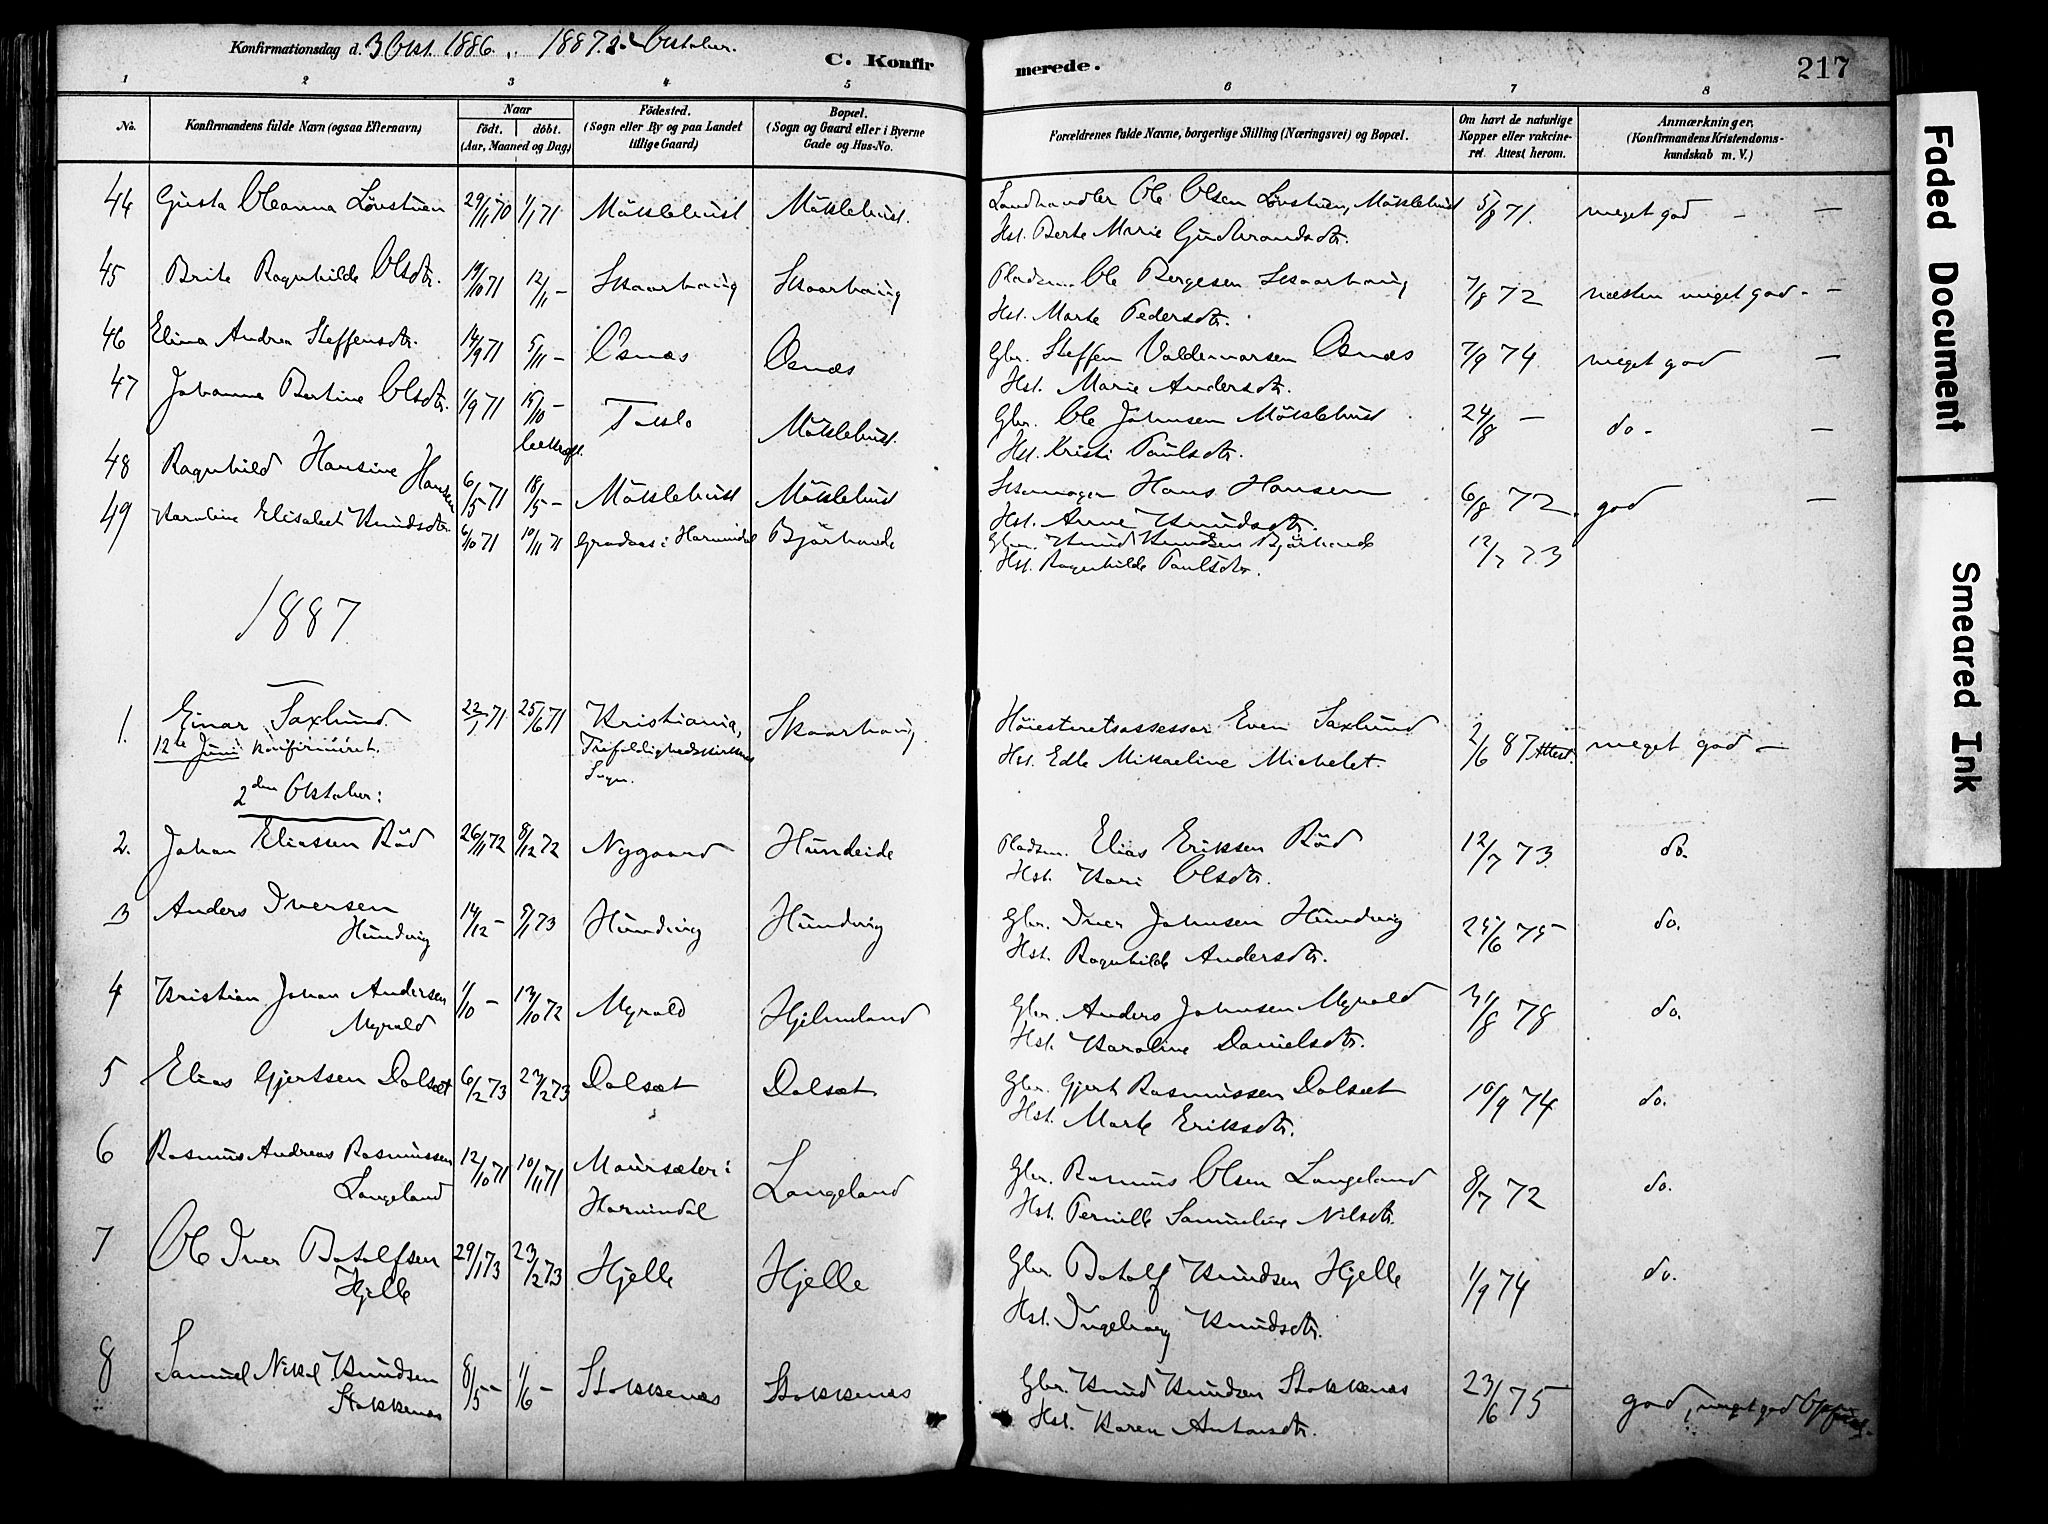 Konfirmationsdag d. 3 Okt. 1886. 1887. 2. Oktober.
C. Konfirmerede.
217
1 2 3 4 5 6 7 8
No.
Konfirmandens fulde Navn (ogsaa Efternavn)
Naar
födt. döbt.
(Aar, Maaned og Dag)
Födested.
(Sogn eller By og paa Landet
tillige Gaard)
Bopæl.
(Sogn og Gaard eller i Byerne
Gade og Hus-No.
Forældrenes fulde Navne, borgerlige Stilling (Næringsvei) og Bopæl.
Om havt de naturlige
Kopper eller vakcine-
ret. Attest herom.
Anmærkninger,
(Konfirmandens Kristendoms-
kundskab m. V.)
44 Gusta Oleanna Lövstuen 29/11 70 1/1 71 Möklebust Möklebust. Landhandler Ole Olsen Lövstuen, Möklebust 5/8 71. meget god — —
Hst. Berte Marie Gudbrandsdtr.
45 Brite Ragnhilde Olsdtr. 19/10 71 12/11 — Skaarhaug Skaarhaug Pladsm. Ole Bergesen Skaarhaug 7/8 72 næsten meget god — —
Hst. Marte Pedersdtr.
46 Elina Andrea Steffensdtr. 14/9 71 5/11 — Osnæs Osnæs Gbr. Steffen Valdemarsen Osnæs 7/9 74 meget god —
Hst. Marie Andersdtr.
47 Johanne Bertine Olsdtr. 1/9 71 15/10 — Taklo Möklebust. Gbr. Ole Johnsen Möklebust 24/8 — do — —
Hst. Kristi Paulsdtr.
48 Ragnhild Hansine Hansen 6/5 71 18/5 — Möklebust Möklebust Hans Hansen 6/8 72. god —
Hst. Anne Knudsdtr.
49 Karoline Elisabet Knudsdtr. 6/10 71 10/11 71 Gradaas i Hornindal Björhovde Gbr. Knud Knudsen Björhovde 12/7 73
Hst. Ragnhilde Paulsdtr.
1887
1. Einar Saxlund. 22/1 71 25/6 71 Kristiania, Skaarhaug. Höiesteretsassessor Even Saxlund 2/6 87 Attest. meget god —
12te Juni konfirmeret. Trefoldighedskirkens Hst. Edle Mikaeline Michelet.
Sogn.
2den Oktober:
2. Johan Eliassen Röd 26/11 72 8/12 72 Nygaard Hundeide Pladsm. Elias Eriksen Röd 12/7 73 do.
Hst. Kari Olsdtr.
3 Anders Iversen 14/12 — 5/1 73 Hundvig Hundvig Gbr. Iver Johnsen Hundvig 25/6 75 do.
Hundvig Hst. Ragnhilde Andersdtr.
4 Kristian Johan Andersen 1/10 — 13/10 72 Myrold Hjelmeland Gbr. Anders Johnsen Myrold 31/8 78 do.
Myrold Hst. Karoline Danielsdtr.
5 Elias Gjertsen Dalsæt 6/2 73 23/2 73 Dalsæt Dalsæt Gbr. Gjert Rasmussen Dalsæt 10/9 74 do.
Hst. Marte Eriksdtr.
6 Rasmus Andreas Rasmussen 12/10 71 10/11 71 Maursæter i Langeland Gbr. Rasmus Olsen Langeland 8/7 72 do.
Langeland Hornindal Hst. Pernille Samueline Nilsdtr.
7 Ole Iver Botolfsen 29/1 73 23/2 73 Hjelle Hjelle Gbr. Botolf Knudsen Hjelle 1/9 74 do.
Hjelle Hst. Ingeborg Knudsdtr.
8 Samuel Nikol Knudsen 8/5 — 1/6 — Stokkenæs Stokkenæs Gbr. Knud Knudsen Stokkenæs 23/6 75 god, meget god
Stokkenæs Hst. Karen Antonsdtr.
Faded Document
Smeared Ink